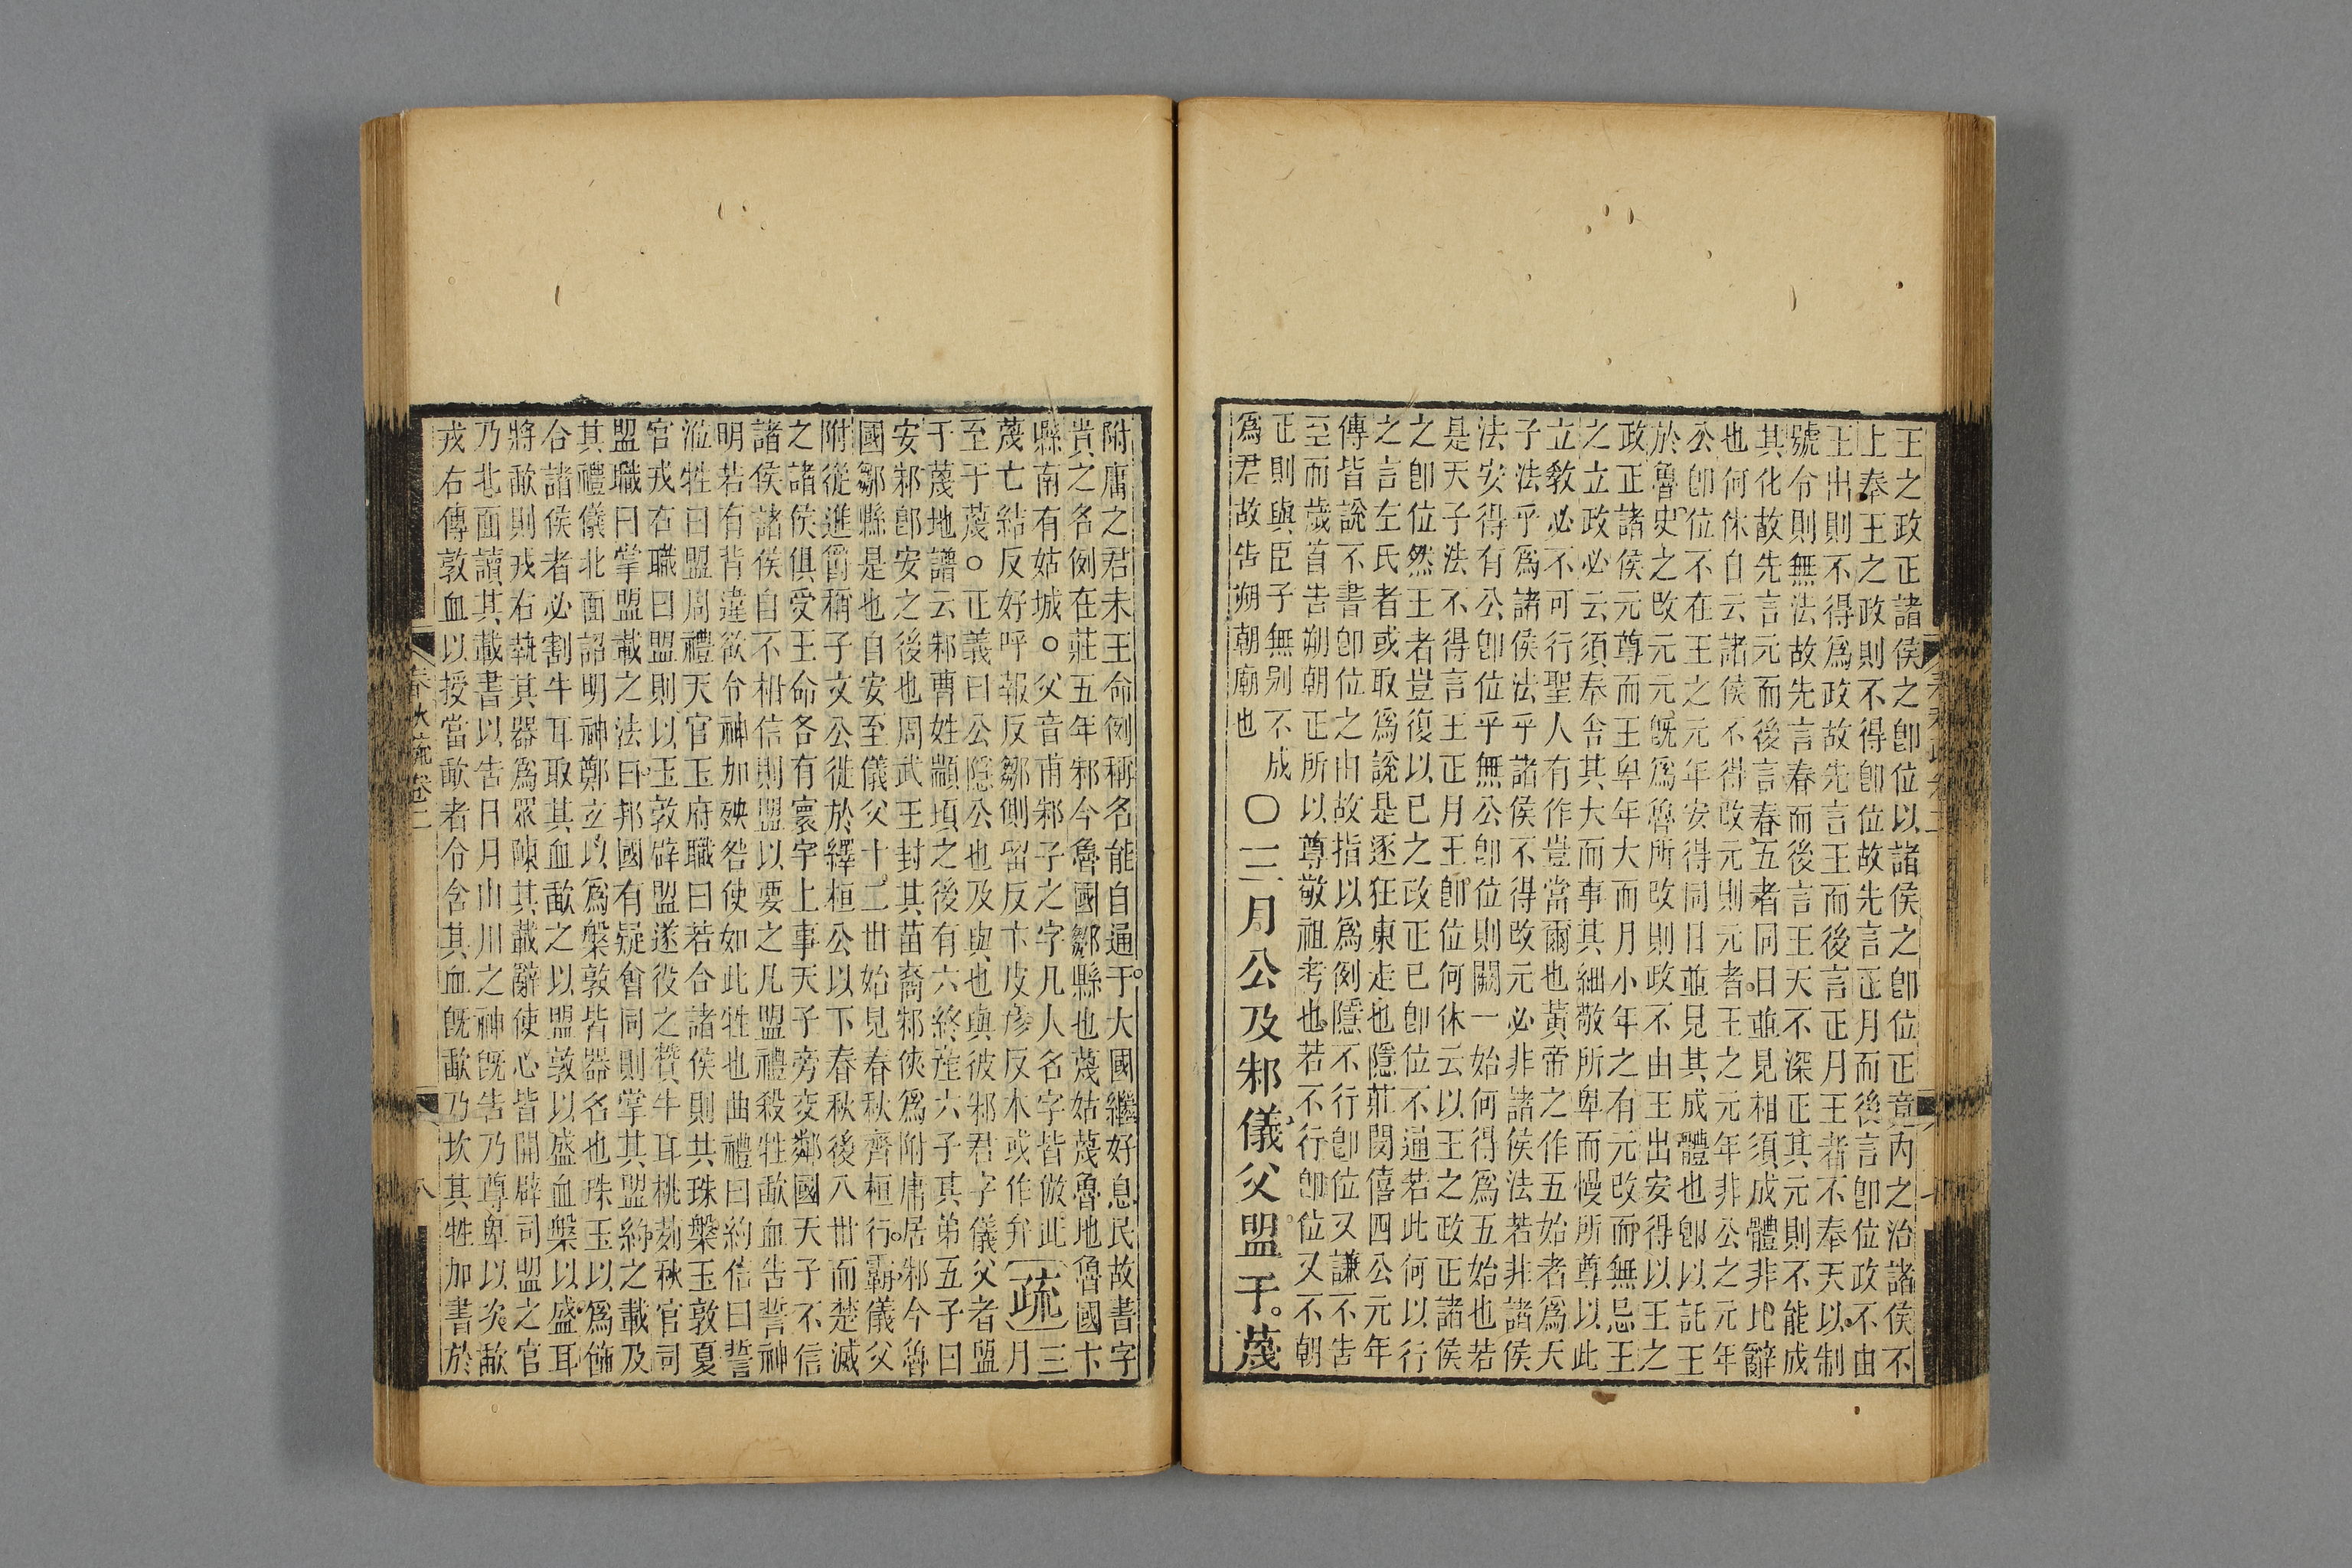 王之政正諸侯之卽位以諸侯之卽位正竟丙之治諸侯不
上奉王之政則不得卽位故先言正月而後言卽位政不由
王出則不得爲政故先言王而後言正月王者不奉天以制
號令則無法故先言春而後言王天不深正其元則不能成
其化故先言元而後言春五者同日並見相須成體非比辭
也何休自云諸侯不得改元則元者王之元年非公之元年
公卽位不在王之元年安得同日並見其成體也卽以託王
於魯史之改元元旣爲魯所改則政不由王出安得以王之
政正諸侯元尊而王卑年大而月小年之有元改而無忌王
之立政必云須奉舍其大而事其細敬所卑而慢所尊以此
立敎必不可行聖人有作豈當爾也黃帝之作五始者爲天
子法乎爲諸侯法乎諸侯不得改元必非諸侯法若非諸侯
法安得有公卽位乎無公卽位則闕一始何得爲五始也若
是天子法不得言王正月王卽位何休云以王之政正諸侯
之卽位然王者豈復以已之政正已卽位不通若此何以行
之言左氏者或取爲說是逐狂東走也隱莊閔僖四公元年
傳皆說不書卽位之由故指以爲例隱不行卽位又謙不告
至而歲首告朔朝正所以尊敬祖考也若不行卽位又不朝
正則與臣子無别不成
爲君故告朔朝廟也
○三月公及邾儀父盟于蔑
附庸之君未王命例稱名能自通于大國繼好息民故書字
貴之名例在莊五年邾今魯國鄒縣也蔑姑蔑魯地魯國卞
縣南有姑城○父音甫邾子之字凡人名字皆倣此
蔑亡結反好呼報反鄒側留反卞皮彥反本或作弁
疏
三
月
至于蔑○正義曰公隱公也及與也與彼邾君字儀父者盟
于蔑地譜云邾曹姓顓頊之後有六終產六子其弟五子曰
安邾卽安之後也周武王封其苗裔邾俠爲附庸居邾今魯
國鄒縣是也自安至儀父十二世始見春秋齊桓行霸儀父
附從進爵稱子文公徙於繹桓公以下春秋後八世而楚滅
之諸侯俱受王命各有寰宇上事天子旁交鄰國天子不信
諸侯諸侯自不相信則盟以要之凡盟禮殺牲歃血告誓神
明若有背違欲令神加殃咎使如此牲也曲禮曰約信曰誓
涖牲曰盟周禮天官玉府職曰若合諸侯則共珠槃玉敦夏
官戎右職曰盟則以玉敦辟盟遂役之贊牛耳桃茢秋官司
盟職曰掌盟載之法曰邦國有疑會同則掌其盟約之載及
其禮儀北面詔明神鄭立以爲槃敦皆器名也珠玉以爲飾
合諸侯者必割牛耳取其血歃之以盟敦以盛血槃以盛耳
將歃則戎右執其器爲眾陳其載辭使心皆開辟司盟之官
乃北面讀其載書以告日月山川之神旣告乃尊卑以次歃
戎右傳敦血以授當歃者令含其血旣歃乃坎其牲加書於
春秋疏卷二
八